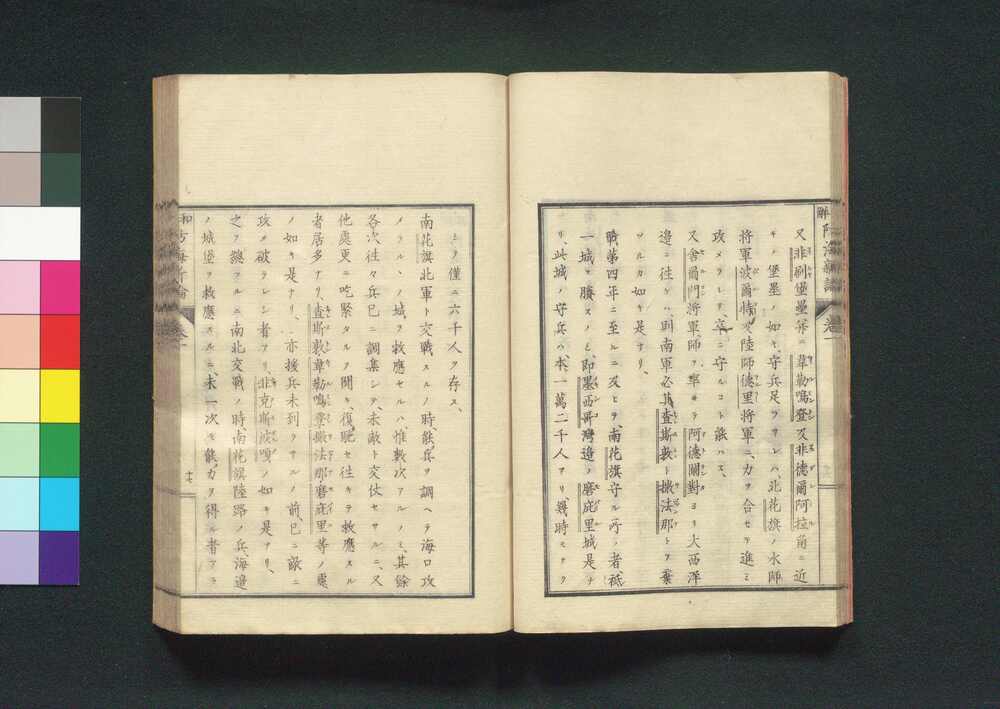 又非利堡壘幷ニ韋勒鳴登及非德爾阿拉角ニ近
キノ堡壘ノ如キ、守兵足ラサレハ北花旗ノ水師
將軍波爾特及陸師德里將軍ニ、力ヲ合セテ進ミ
攻メラレテ、卒ニ守ルコト能ハス、
又舍爾門將軍師ヲ率ヰテ阿德蘭對ヨリ大西洋
邊ニ往ケハ、則南軍必其査斯敦ト撒法那トヲ棄
ツルカ如キ是ナリ、
戰第四年ニ至ルニ及ヒテ、南花旗守ル所ノ者、祗
一城ヲ賸スノミ、即墨西哥灣邊ノ磨庇里城是ナ
リ、此城ノ守兵ハ、本一萬二千人アリ、幾時ニテク
シテ僅ニ六千人ヲ存ス、
南花旗北軍ト交戰スルノ時、能兵ヲ調ヘテ海口攻
メラルヽノ城ヲ救應セルハ、惟數次アルノミ、其餘
各次往々兵已ニ調集シテ、未敵ト交仗セサルニ、又
他處更ニ吃緊タルヲ聞キ、復馳セ往キテ救應スル
者居多ナリ、査斯敦韋勒鳴登撒法那磨庇里等ノ處
ノ如キ是ナリ、亦援兵未到ラサルノ前、已ニ敵ニ
攻メ破ラレシ者アリ、非克斯波嘎ノ如キ是ナリ、
之ヲ總フルニ南北交戰ノ時、南花旗陸路ノ兵海邊
ノ城堡ヲ救應スルニ、未一次モ能ク力ヲ得ル者アラ
防海新論
卷一
十七